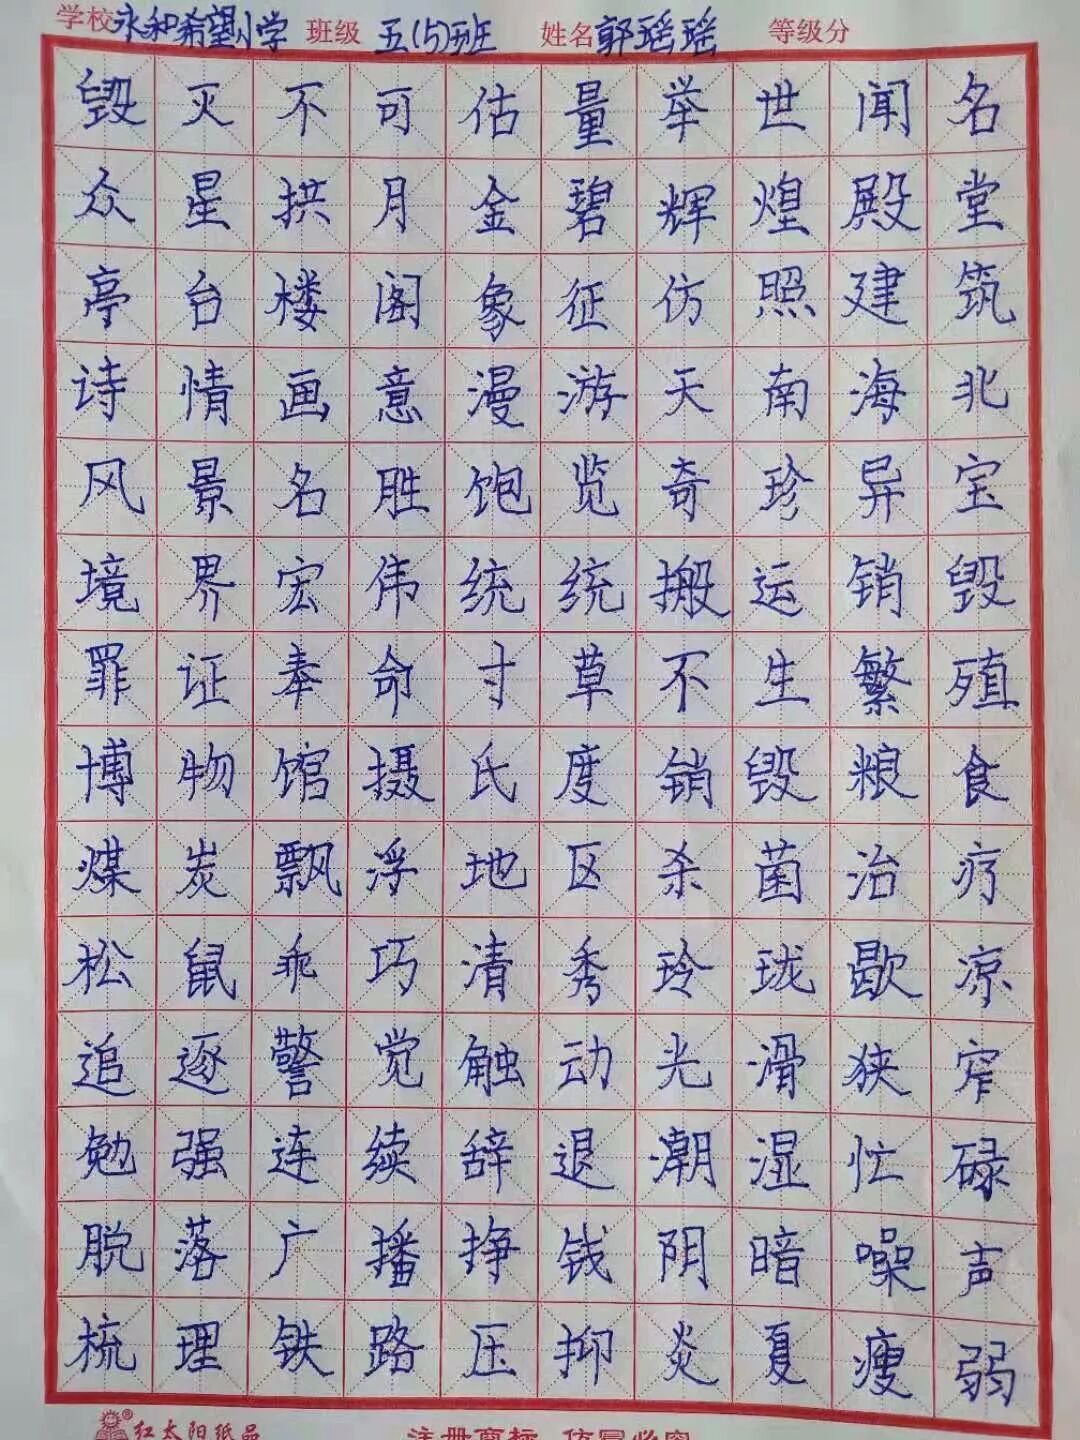 学校永和希望小学 班级 五(5)班 姓名郭瑶瑶 等级分
毁灭不可估量举世闻名
众星拱月金碧辉煌殿堂
亭台楼阁象征仿照建筑
诗情画意漫游天南海北
风景名胜饱览奇珍异宝
境界宏伟统统搬运销毁
罪证奉命寸草不生繁殖
博物馆摄氏度销毁粮食
煤炭飘浮地区杀菌治疗
松鼠乖巧清秀玲珑歇凉
追逐警觉触动光滑狭窄
勉强连续辞退潮湿忙碌
脱落广播挣钱阴暗噪声
梳理铁路压抑炎夏瘦弱
红太阳纸品 注册商标 仿冒必究